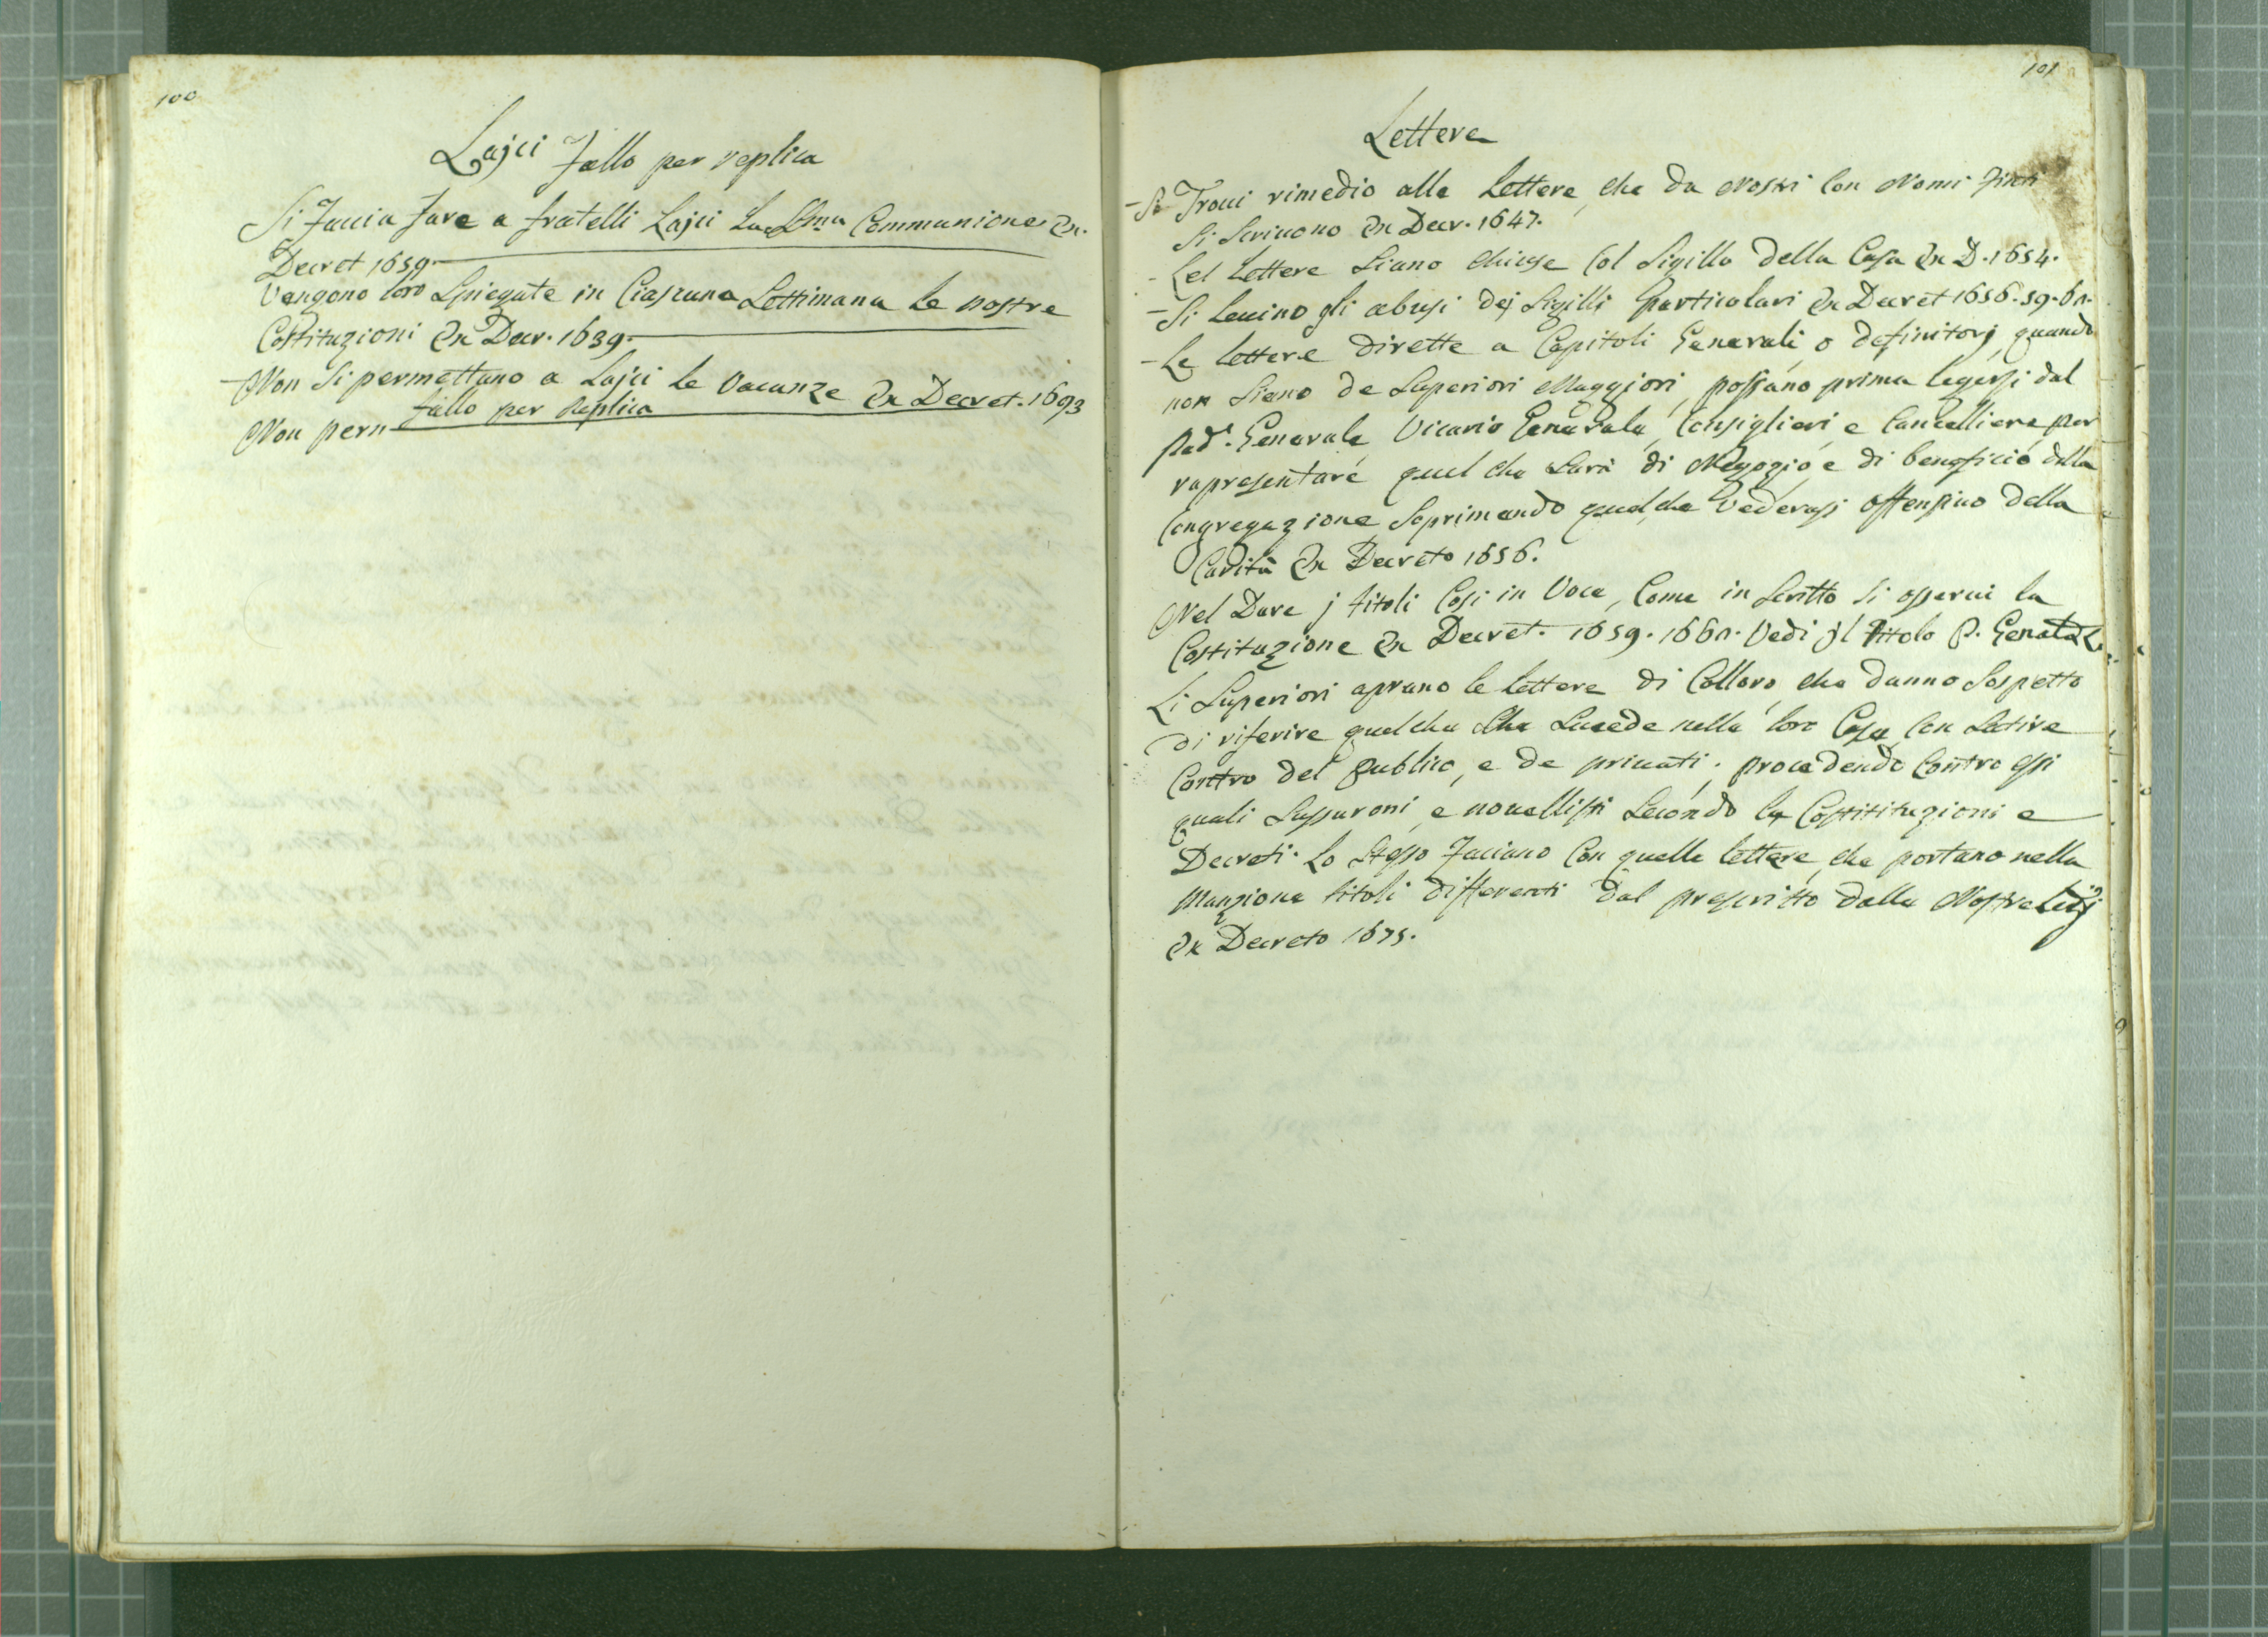 100
Lajci fallo per replica
Si Faccia fare a fratelli Lajci La SSma Communione Ex.
Decret 1659.
Vengono loro Spiegate in Ciascuna Settimana le nostre
Costituzioni Ex Decr. 1639.
-Non Si permettano a Lajci le Vacanze Ex Decret. 1693
Non perm fallo per replica
101
Lettere
-Si Troui rimedio alle Lettere, che da Nostri Con Nomi finti
Si Scriuono Ex Decr. 1647.
-Lel Lettere Siano chiuse Col Sigillo della Casa Ex D. 1654.
-Si Leuino gli abusi dej Sigilli particolari Ex Decret 1656. 59. 60.
-Le lettere dirette a Capitoli Generali, o definitorj, quando
non Siano de Superiori Maggiori, possano prima legersi dal
Pad.e Generale, Vicario Generale, Consiglieri, e Cancelliere, per
rapresentare quel che Sarà di Negozio, e di beneficio della
Congregazione, Soprimendo quel, che Vederassi offensiuo della
Carità Ex Decreto 1656.
Nel Dare j titoli Cosi in Voce, Come in Scritto Si osserui la
Costituzione Ex Decret. 1659. 1660. Vedi jl titolo P. Generale
Li Superiori aprano le lettere di Colloro, che danno Sospetto
di riferire quel che Sucede nella loro Casa Con Satire
Contro del publico, e de priuati; procedendo Contro essi
quali Sussuroni, e nouellisti Secondo le Costitituzioni e
Decreti. Lo Stesso Faciano Con quelle lettere, che portano nella
Manzione titoli differenti dal prescritto dalle Nostre Legj
Ex Decreto 1675.